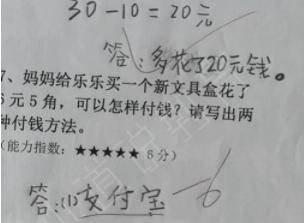 30-10=20元
答:多花了20元钱。
7、妈妈给乐乐买一个新文具盒花了
6元5角,可以怎样付钱?请写出两
种付钱方法。
(能力指数:★★★★★ 5分)
答:(1)支付宝 -6